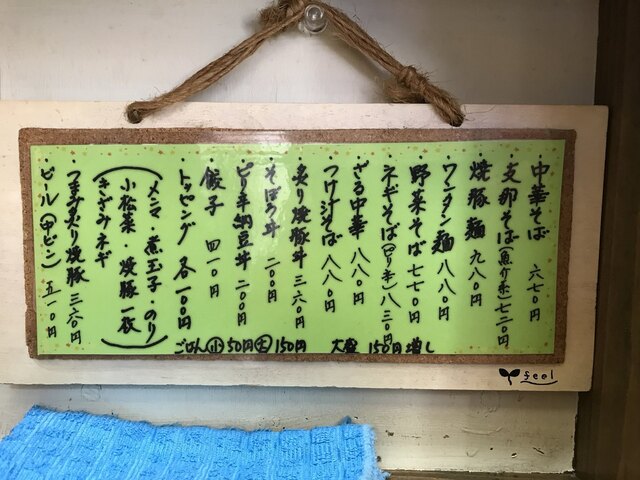 ・中華そば 六七〇円
・支那そば(魚介系)七二〇円
・焼豚麺 九八〇円
・ワンタン麺 八八〇円
・野菜そば 七七〇円
・ネギそば(ピリ辛)八三〇円
・ざる中華 八八〇円
・つけ汁そば 八八〇円
・炙り焼豚丼 三六〇円
・そぼろ丼 二〇〇円
・ピリ辛納豆丼 二〇〇円
・餃子 四一〇円
・トッピング 各一〇〇円
(メンマ・煮玉子・のり
小松菜・焼豚一枚)
きざみネギ
・つまみ炙り焼豚 三六〇円
・ビール(中ビン) 五一〇円
ごはん 小 50円 大 150円 大盛 150円増し
feel